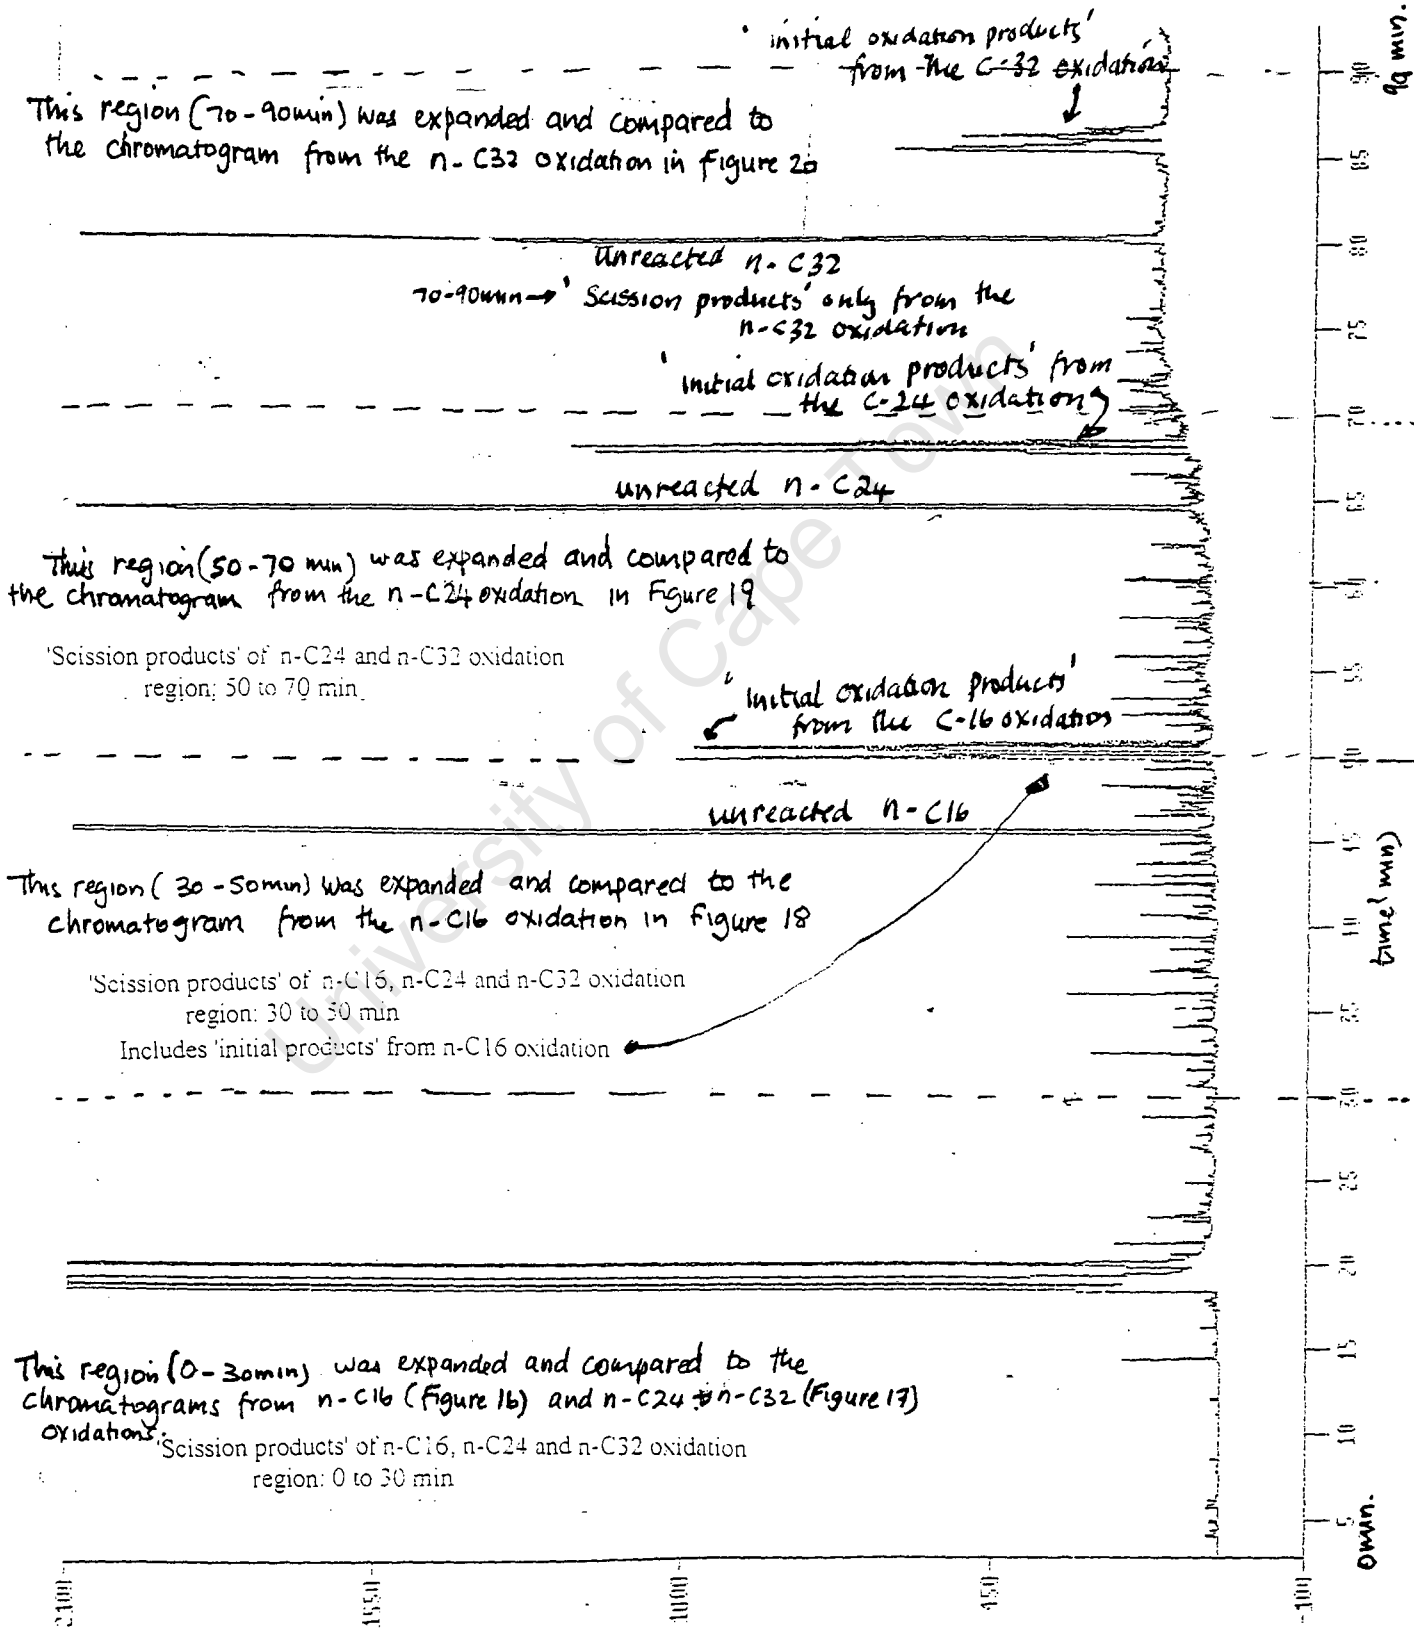 ' initial oxidation products'
from the C-32 oxidation
This region (70-90min) was expanded and compared to
the chromatogram from the n-C32 oxidation in Figure 20
Unreacted n-C32
70-90min→ ' Scission products' only from the
n-C32 oxidation
' Initial oxidation products' from
the C-24 oxidation
unreacted n-C24
This region (50-70 min) was expanded and compared to
the chromatogram from the n-C24 oxidation in Figure 19
'Scission products' of n-C24 and n-C32 oxidation
region: 50 to 70 min.
' Initial oxidation products'
from the C-16 oxidation
unreacted n-C16
This region (30-50min) was expanded and compared to the
chromatogram from the n-C16 oxidation in Figure 18
'Scission products' of n-C16, n-C24 and n-C32 oxidation
region: 30 to 50 min
Includes 'initial products' from n-C16 oxidation
This region (0-30min) was expanded and compared to the
chromatograms from n-C16 (Figure 16) and n-C24 n-C32 (Figure 17)
oxidations.
'Scission products' of n-C16, n-C24 and n-C32 oxidation
region: 0 to 30 min
University of Cape Town
99 min.
90
85
80
75
70
65
60
55
50
45
40
35
30
25
20
15
10
5
0min.
time (min)
2100
1550
1000
450
-100